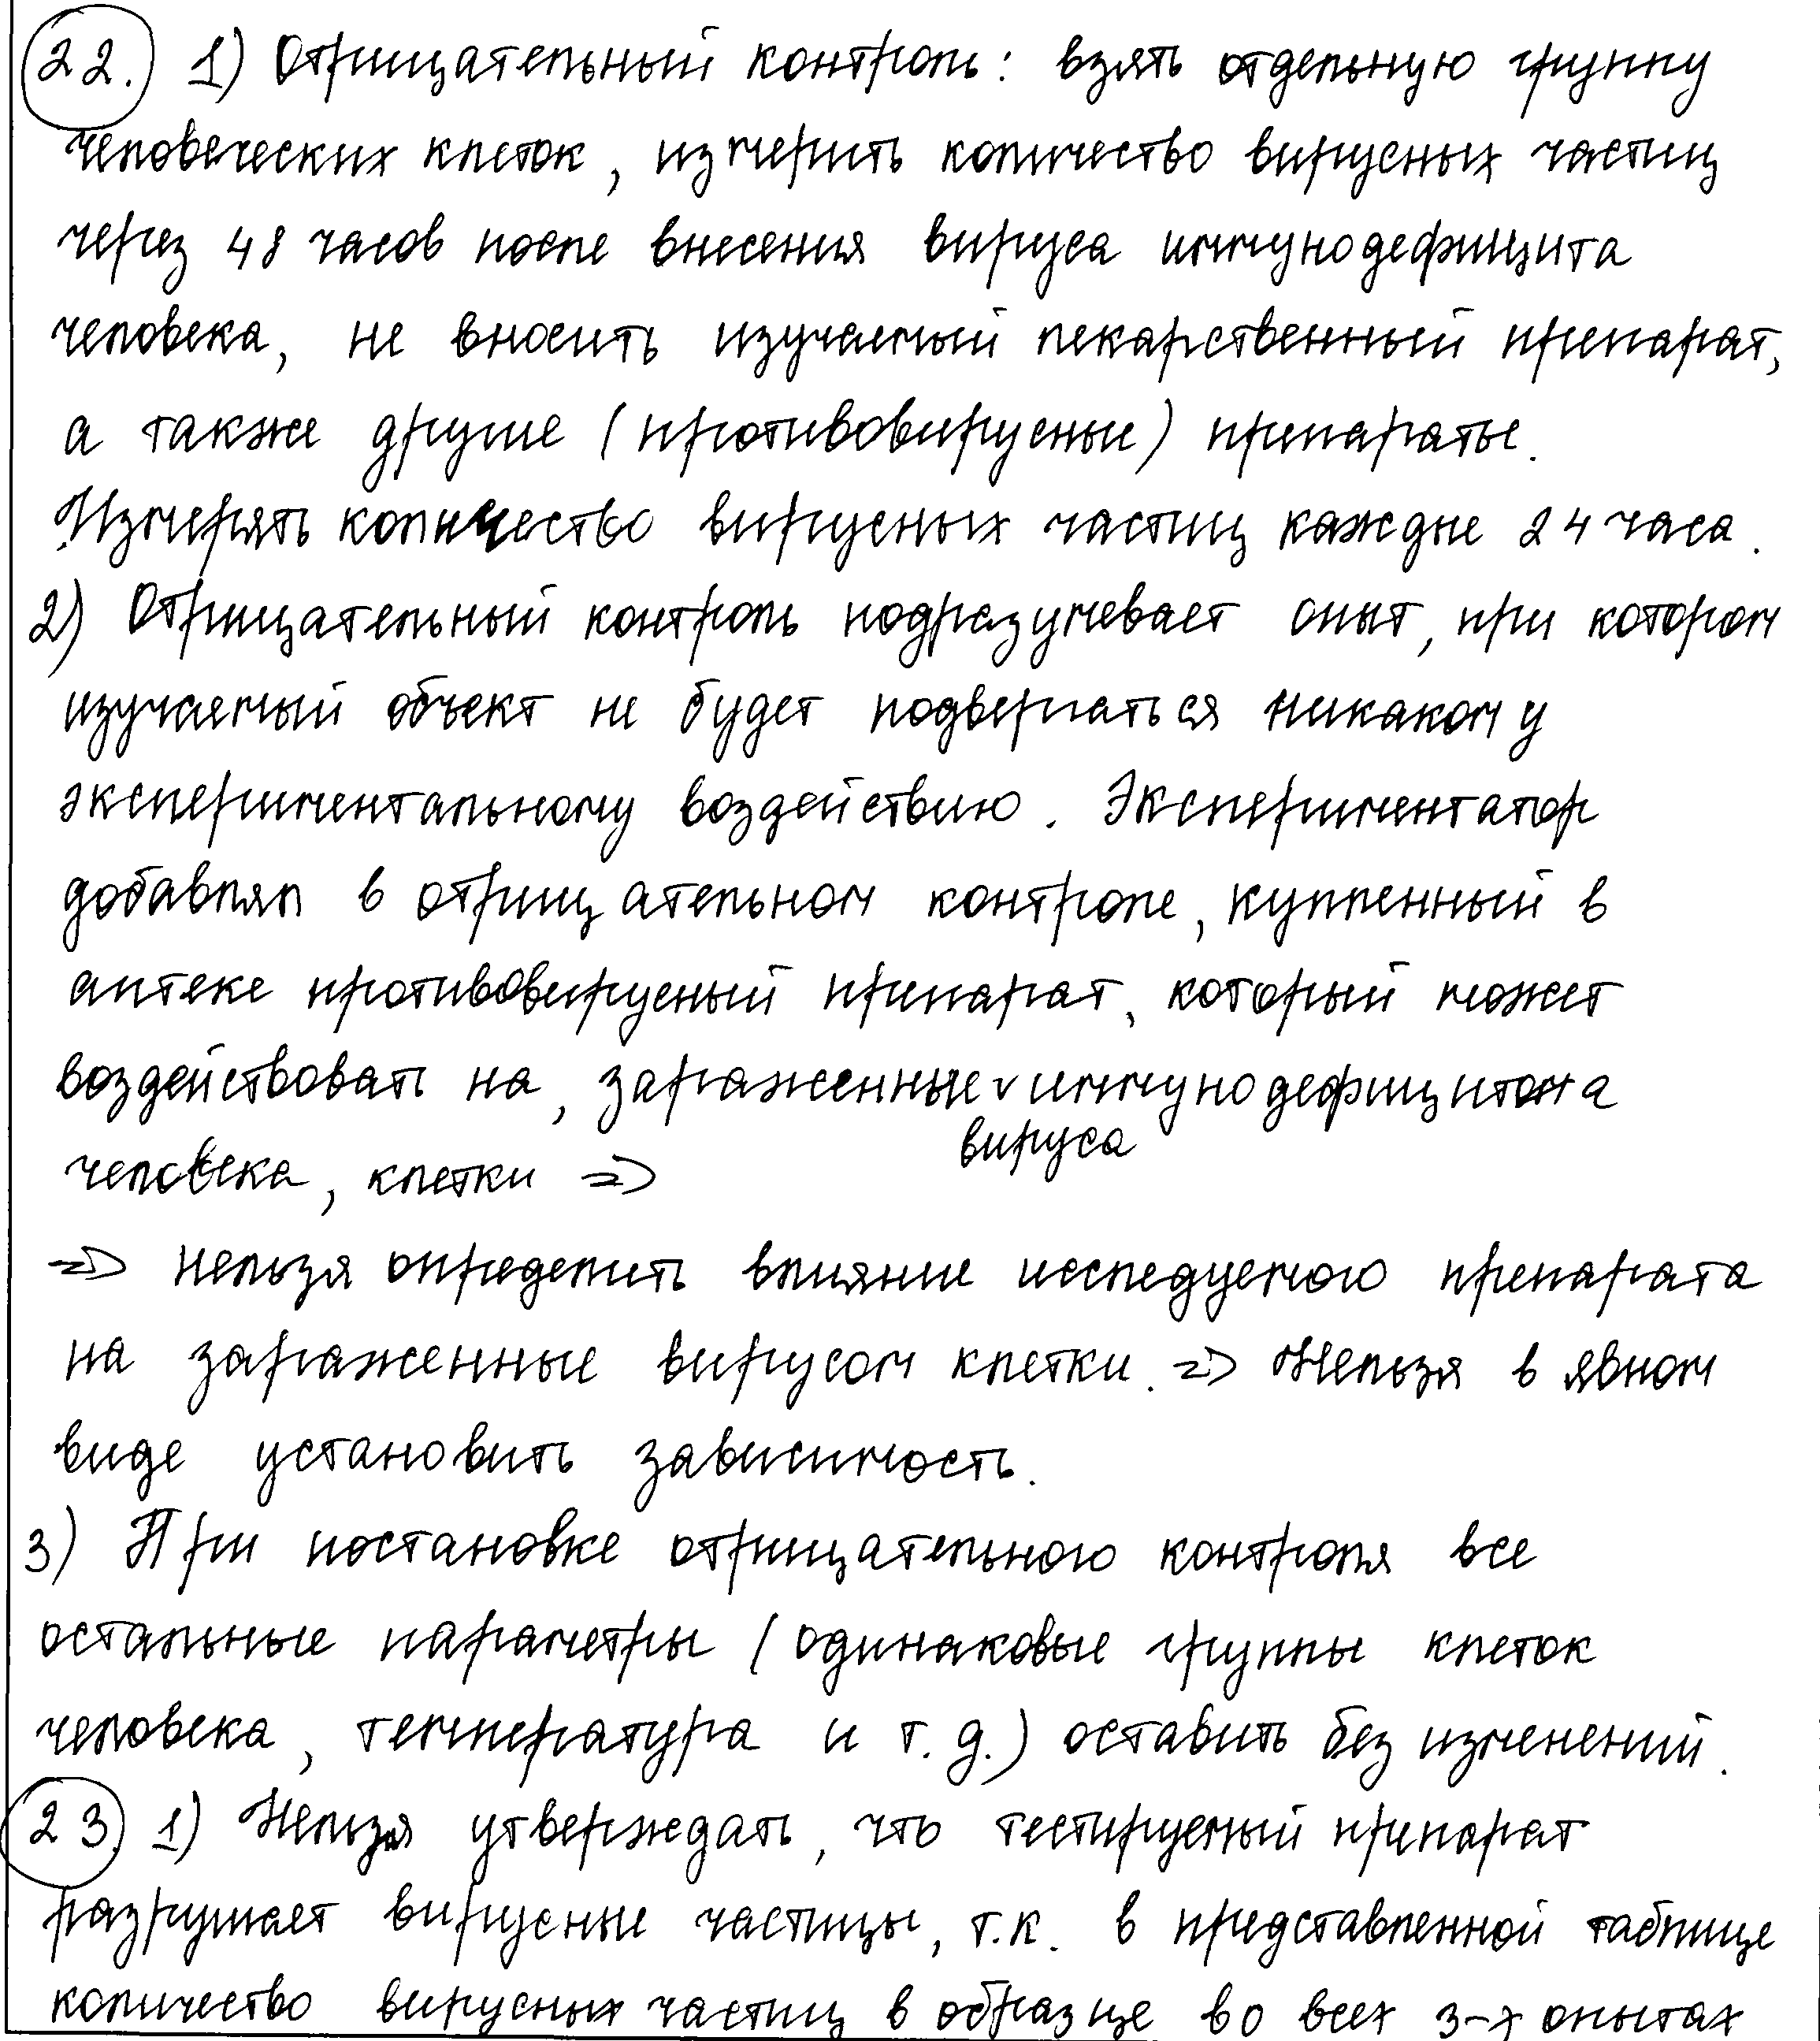 22. 1) Отрицательный контроль: взять отдельную группу
человеческих клеток, измерить количество вирусных частиц
через 48 часов после внесения вируса иммунодефицита
человека, не вносить изучаемый лекарственный препарат,
а также другие (противовирусные) препараты.
Измерять количество вирусных частиц каждые 24 часа.
2) Отрицательный контроль подразумевает опыт, при котором
изучаемый объект не будет подвергаться никакому
экспериментальному воздействию. Экспериментатор
добавлял в отрицательном контроле, купленный в
аптеке противовирусный препарат, который может
воздействовать на, зараженные v иммунодефицитома
вируса
человека, клетки =>
=> нельзя определить влияние исследуемого препарата
на зараженные вирусом клетки. => Нельзя в явном
виде установить зависимость.
3) При постановке отрицательного контроля все
остальные параметры (одинаковые группы клеток
человека, температура и т. д.) оставить без изменений.
23. 1) Нельзя утверждать, что тестируемый препарат
разрушает вирусные частицы, т.к. в представленной таблице
количество вирусных частиц в образце во всех 3-х опытах